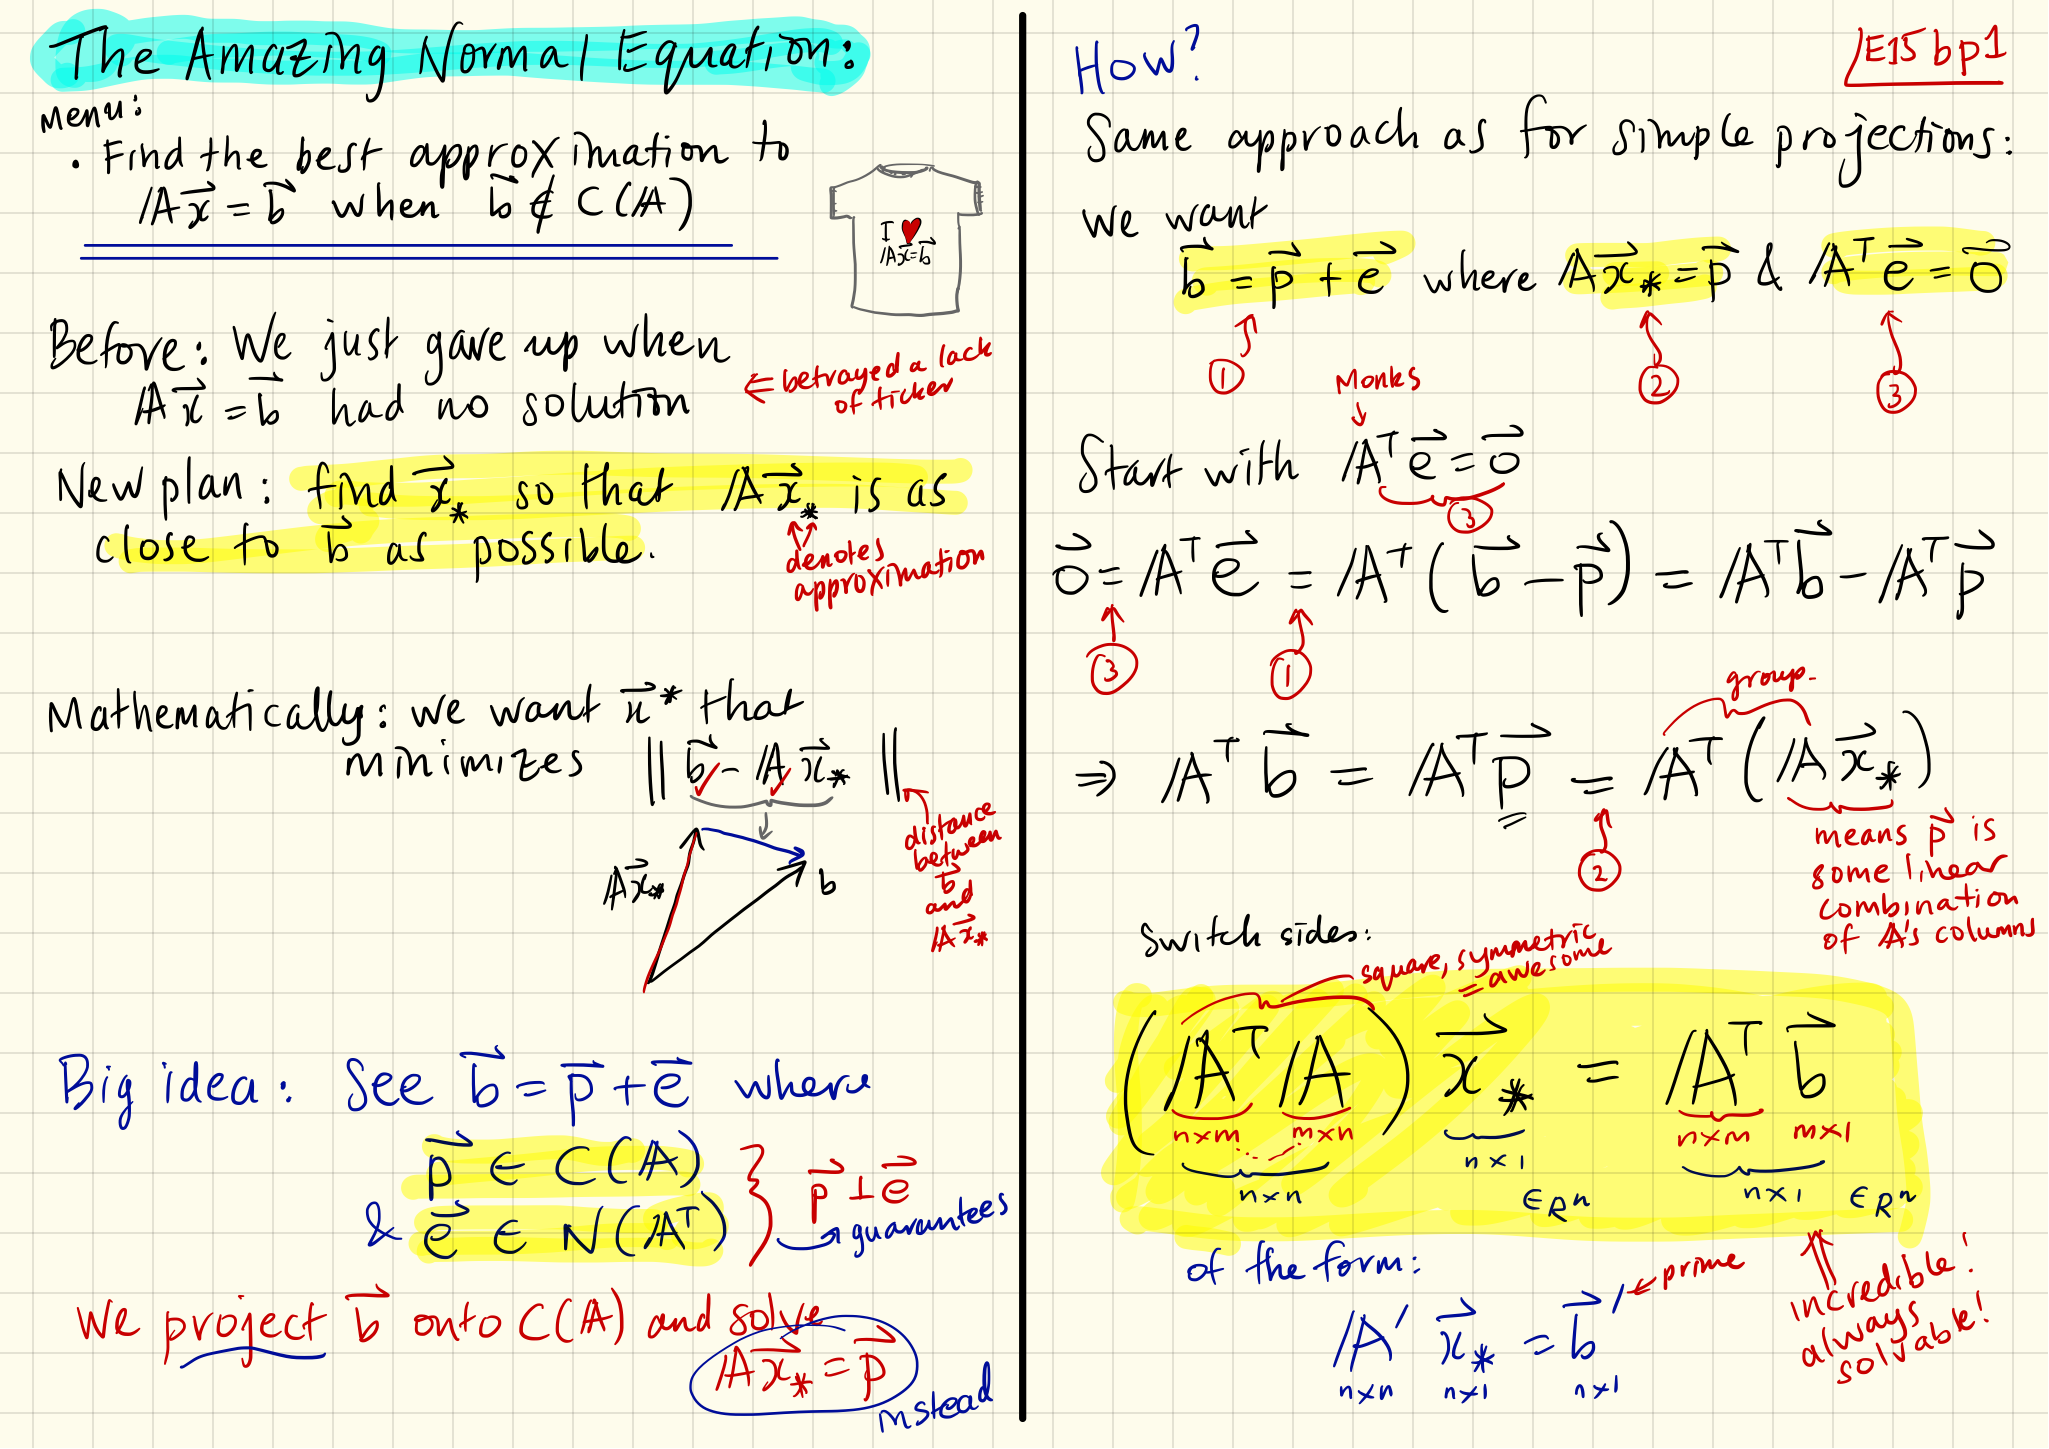 The Amazing Normal Equation:
Menu:
• Find the best approximation to
A x⃗ = b⃗ when b⃗ ∉ C(A)
I ♥
A x⃗ = b⃗
Before: We just gave up when
A x⃗ = b⃗ had no solution
⇐ betrayed a lack
of ticker
New plan: find x⃗_* so that A x⃗_* is as
close to b⃗ as possible.
denotes
approximation
Mathematically: we want x⃗* that
minimizes || b⃗ - A x⃗_* ||
distance
between
b⃗
and
A x⃗_*
A x⃗_*
b
Big idea: See b⃗ = p⃗ + e⃗ where
p⃗ ∈ C(A)
& e⃗ ∈ N(Aᵀ)
p⃗ ⊥ e⃗
guarantees
We project b⃗ onto C(A) and solve
A x⃗_* = p⃗
instead
How?
/E15 bp1
Same approach as for simple projections:
we want
b⃗ = p⃗ + e⃗ where A x⃗_* = p⃗ & Aᵀ e⃗ = 0⃗
① ② ③
Monks
Start with Aᵀ e⃗ = 0⃗
③
0⃗ = Aᵀ e⃗ = Aᵀ ( b⃗ - p⃗ ) = Aᵀ b⃗ - Aᵀ p⃗
③ ①
group
⇒ Aᵀ b⃗ = Aᵀ p⃗ = Aᵀ ( A x⃗_* )
②
means p⃗ is
some linear
combination
of A's columns
Switch sides:
square, symmetric
= awesome
( Aᵀ A ) x⃗_* = Aᵀ b⃗
n×m m×n n×1 n×m m×1
n×n ∈Rⁿ n×1 ∈Rⁿ
of the form:
prime
A′ x⃗_* = b⃗′
n×n n×1 n×1
incredible!
always
solvable!